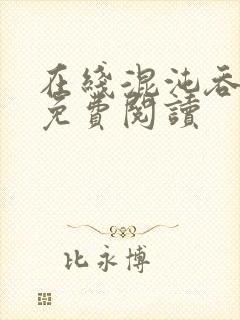 在綫混沌吞
免費閱讀
比永博